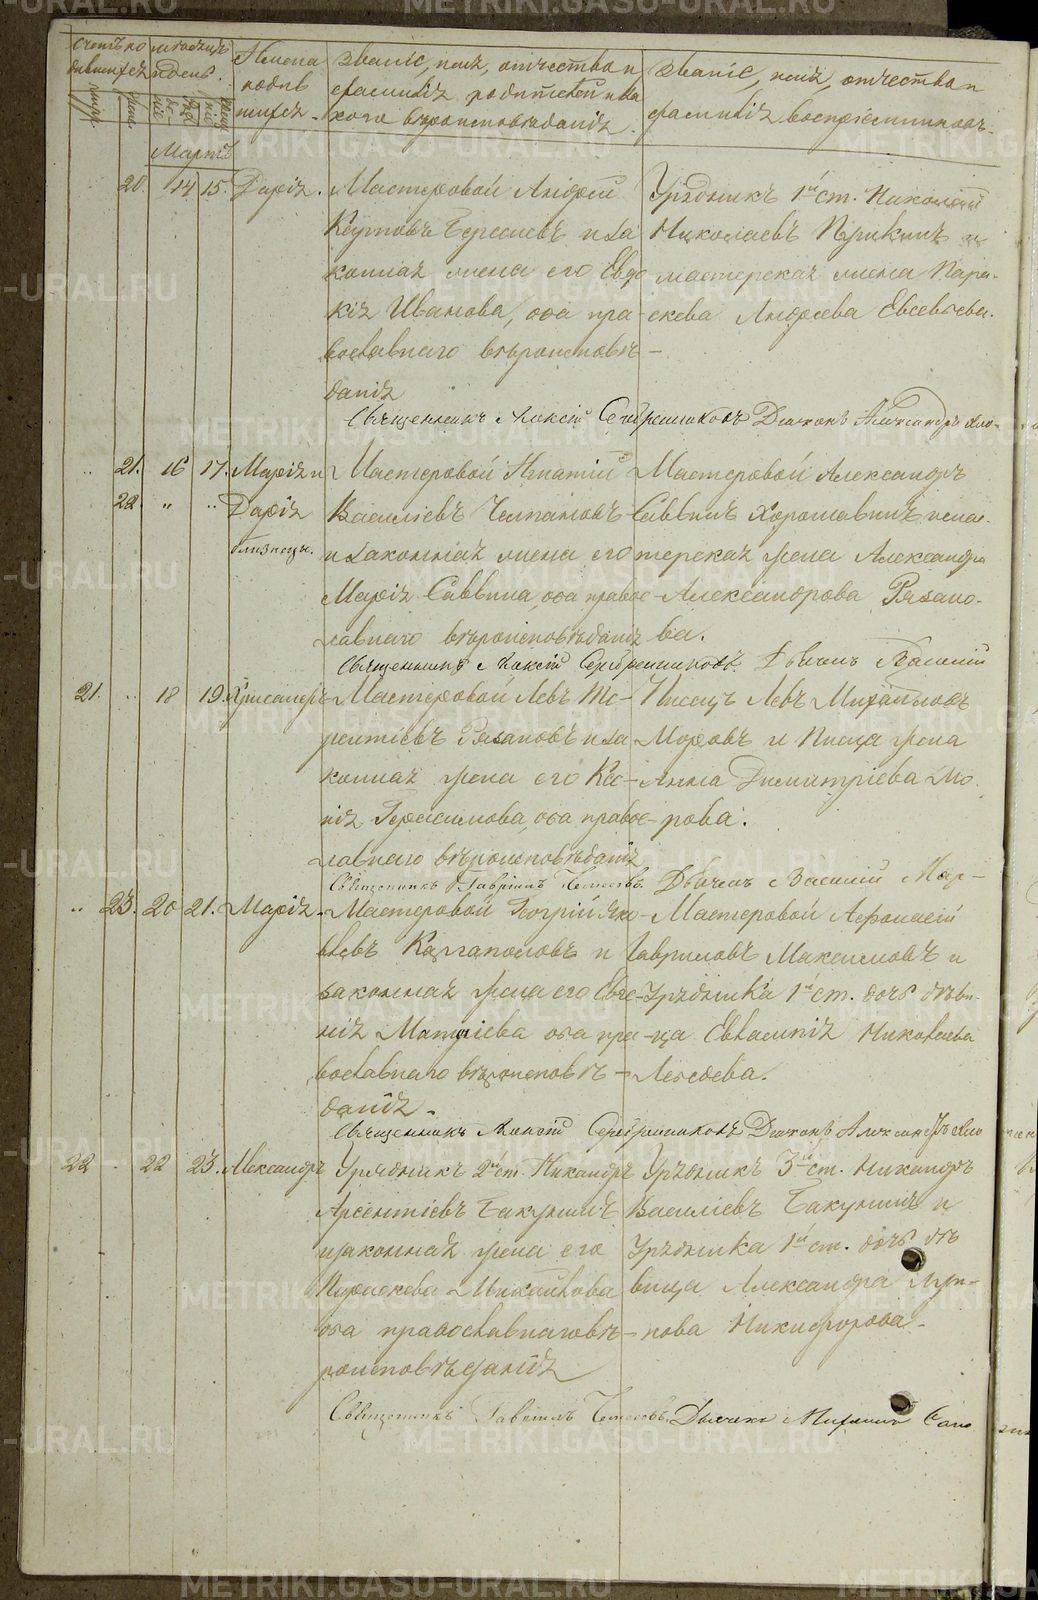 Счетъ ро
дившихся
Мѣсяцъ
и день.
Имена
родив
шихся.
Званіе, имя, отчество и
фамилія родителей и ка
кого вѣроисповѣданія.
Званіе, имя, отчество и
фамилія воспріемниковъ.
Мартъ
20. 14 15. Дарія.
Мастеровой Андрей
и за
конная жена его Евдо
кія Иванова, оба пра-
вославнаго вѣроисповѣ-
данія
Урядникъ 1й ст. Николай
Николаевъ
мастерская жена Пара-
скева Андреева Евсевьева.
Священникъ Алексій Серебренниковъ Дьяконъ Александръ
21. 16 17. Марія и
22. " " Дарія
близнецы.
Мастеровой Игнатій
Василіевъ Челпановъ
и законная жена его
Марія Саввина, оба правос-
лавнаго вѣроисповѣданія
Мастеровой Александръ
Саввинъ Хорошавинъ и мас-
терская жена Александра
Александрова Рязано-
ва.
Священникъ Алексій Серебренниковъ. Дьячекъ Василій
21. 18 19. Хрисанфъ
Мастеровой Левъ Те-
рентіевъ Рязановъ и за
конная жена его Ксе-
нія Герасимова, оба правос-
лавнаго вѣроисповѣданія
Писецъ Левъ Михайловъ
Моровъ и Писца жена
Анна Димитріева Мо
рова.
Священникъ Гавріилъ Дьячекъ Василій Мар-
23. 20 21. Марія.
Мастеровой Георгій Яко-
влевъ Каргаполовъ и
законная жена его Евге-
нія Матѳіева оба пра-
вославнаго вѣроисповѣ-
данія.
Мастеровой Афанасій
Гавриловъ Максимовъ и
Урядника 1й ст. дочь дѣви-
ца Евлампія Николаева
Лебедева.
Священникъ Алексій Серебренниковъ Дьяконъ Александръ
22 22 23. Александръ
Урядникъ 2й ст. Никандръ
Арсентіевъ Бакунинъ
и законная жена его
Параскева Михайлова
оба православнаго вѣ-
роисповѣданія
Урядникъ 3й ст. Никандръ
Василіевъ Бакунинъ и
Урядника 1й ст. дочь дѣ
вица Александра
нова Никифорова.
Священникъ Гавріилъ Дьячекъ Михаилъ
METRIKI.GASO-URAL.RU